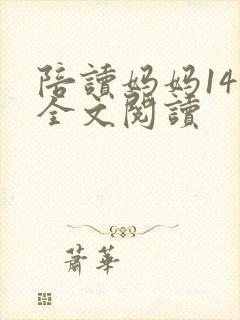 陪讀媽媽14
全文閱讀
蕭華